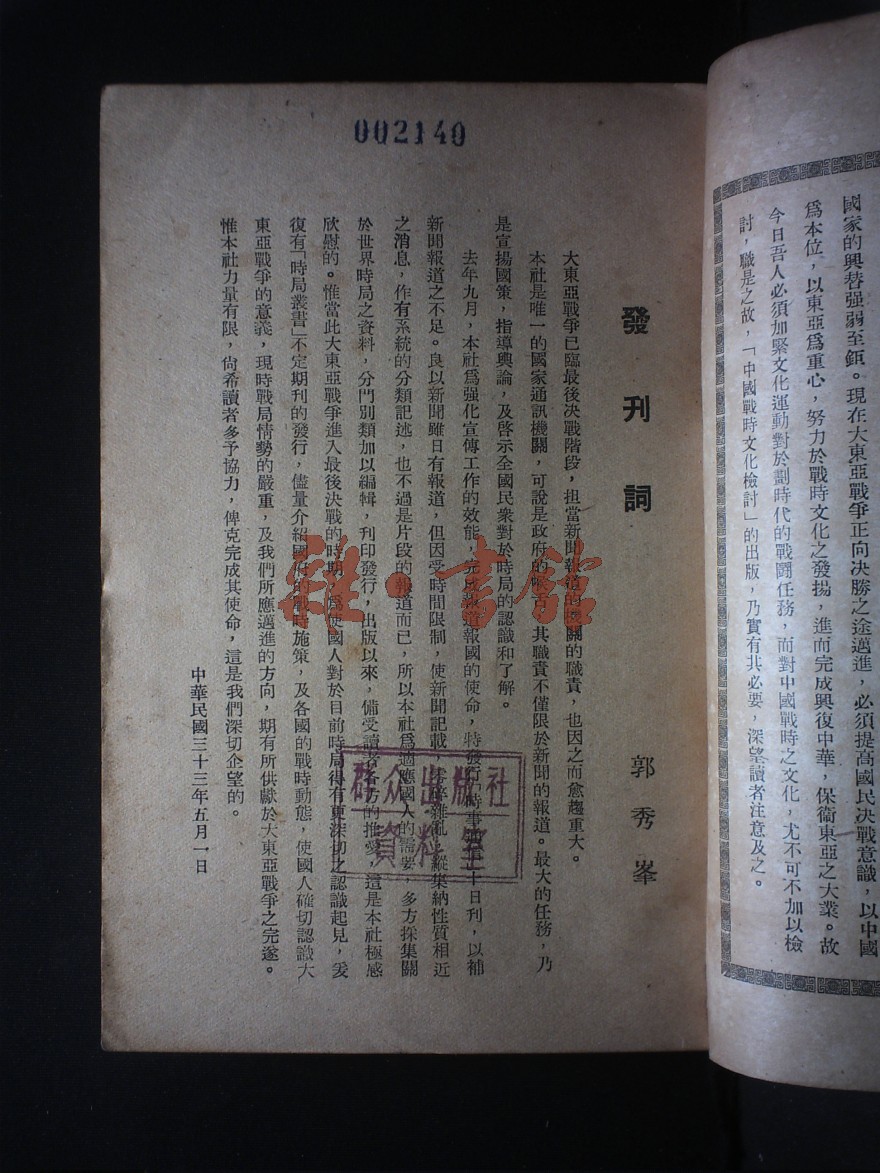 國家的興替强弱至鉅。現在大東亞戰爭正向决勝之途邁進，必須提高國民决戰意識，以中國
爲本位，以東亞爲重心，努力於戰時文化之發揚，進而完成興復中華，保衞東亞之大業。故
今日吾人必須加緊文化運動對於劃時代的戰鬪任務，而對中國戰時之文化，尤不可不加以檢
討，職是之故，「中國戰時文化檢討」的出版，乃實有其必要，深望讀者注意及之。
002140
發刊詞
郭秀峯
大東亞戰爭已臨最後决戰階段，担當新聞報道的機關的職責，也因之而愈趨重大。
本社是唯一的國家通訊機關，可說是政府的喉舌，其職責不僅限於新聞的報道。最大的任務，乃
是宣揚國策，指導輿論，及啓示全國民衆對於時局的認識和了解。
去年九月，本社爲强化宣傳工作的效能，完成報道報國的使命，特發行「時事
十日刊，以補
新聞報道之不足。良以新聞雖日有報道，但因受時間限制，使新聞記載，零碎雜亂，縱集納性質相近
之消息，作有系統的分類記述，也不過是片段的報道而已，所以本社爲適應國人的需要，多方採集關
於世界時局之資料，分門別類加以編輯，刊印發行，出版以來，備受讀者各方的推愛，這是本社極感
欣慰的。惟當此大東亞戰爭進入最後决戰的時期，爲使國人對於目前時局得有更深切之認識起見，爰
復有「時局叢書」不定期刊的發行，儘量介紹國府的戰時施策，及各國的戰時動態，使國人確切認識大
東亞戰爭的意義，現時戰局情勢的嚴重，及我們所應邁進的方向，期有所供獻於大東亞戰爭之完遂。
惟本社力量有限，尙希讀者多予協力，俾克完成其使命，這是我們深切企望的。
中華民國三十三年五月一日
群众出版社
資料室
雜·書館